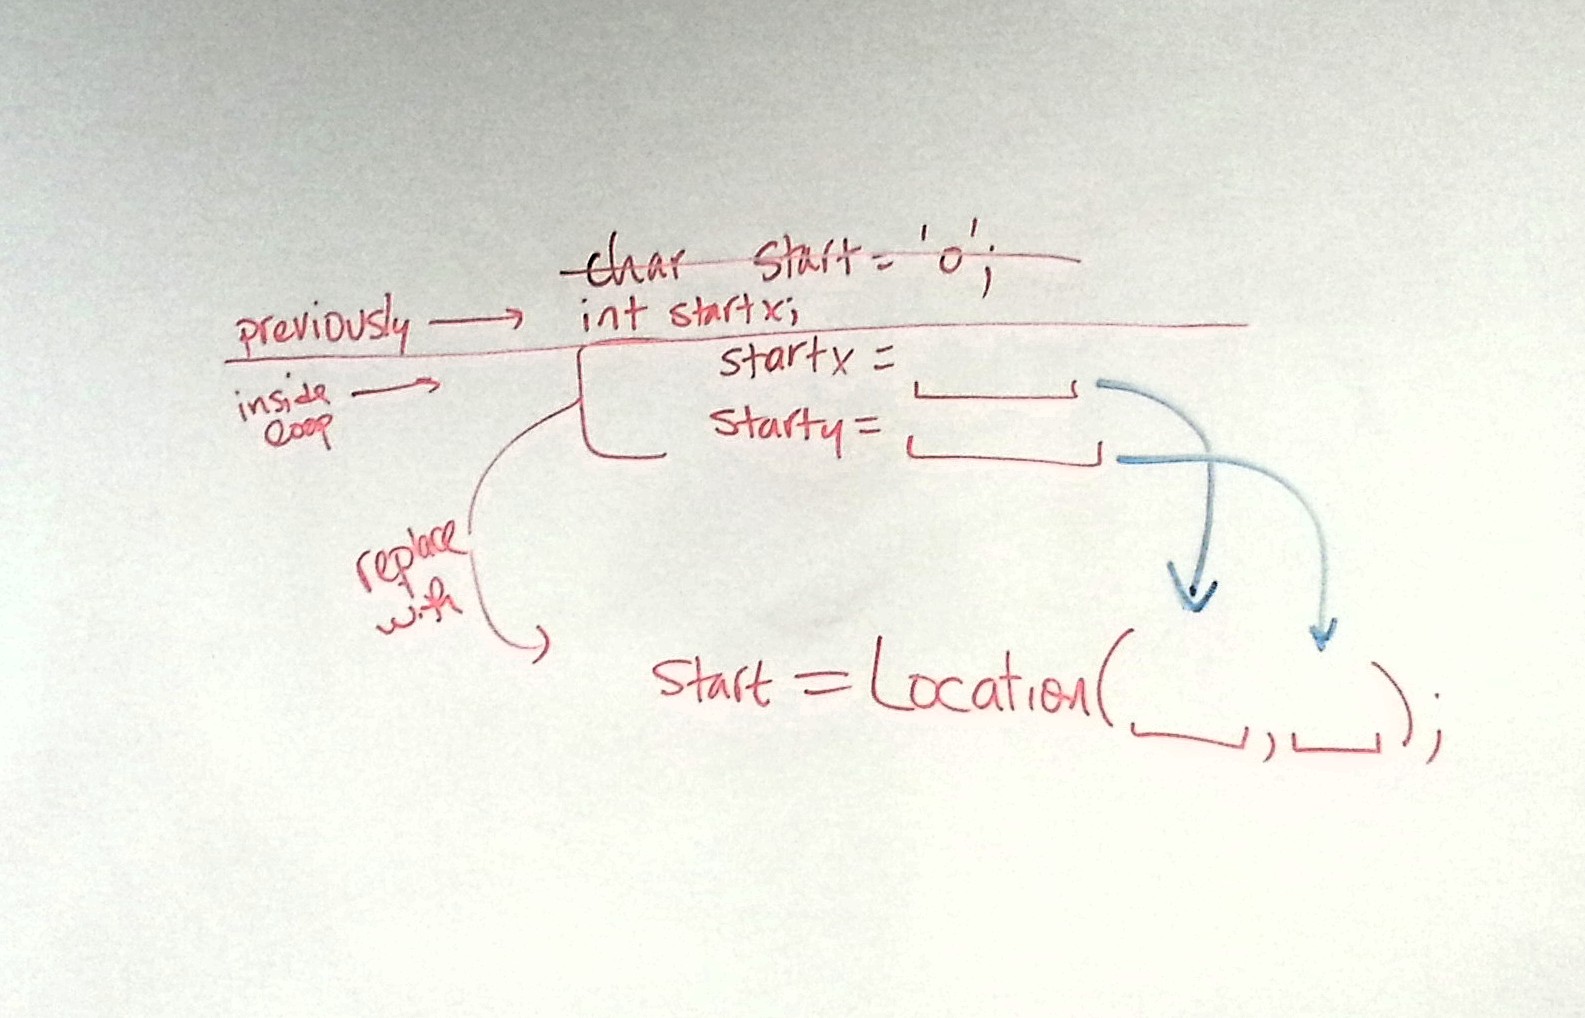 char start = 'o';
previously → int startx;
inside loop → startx =
starty =
replace
with
start = Location( , );